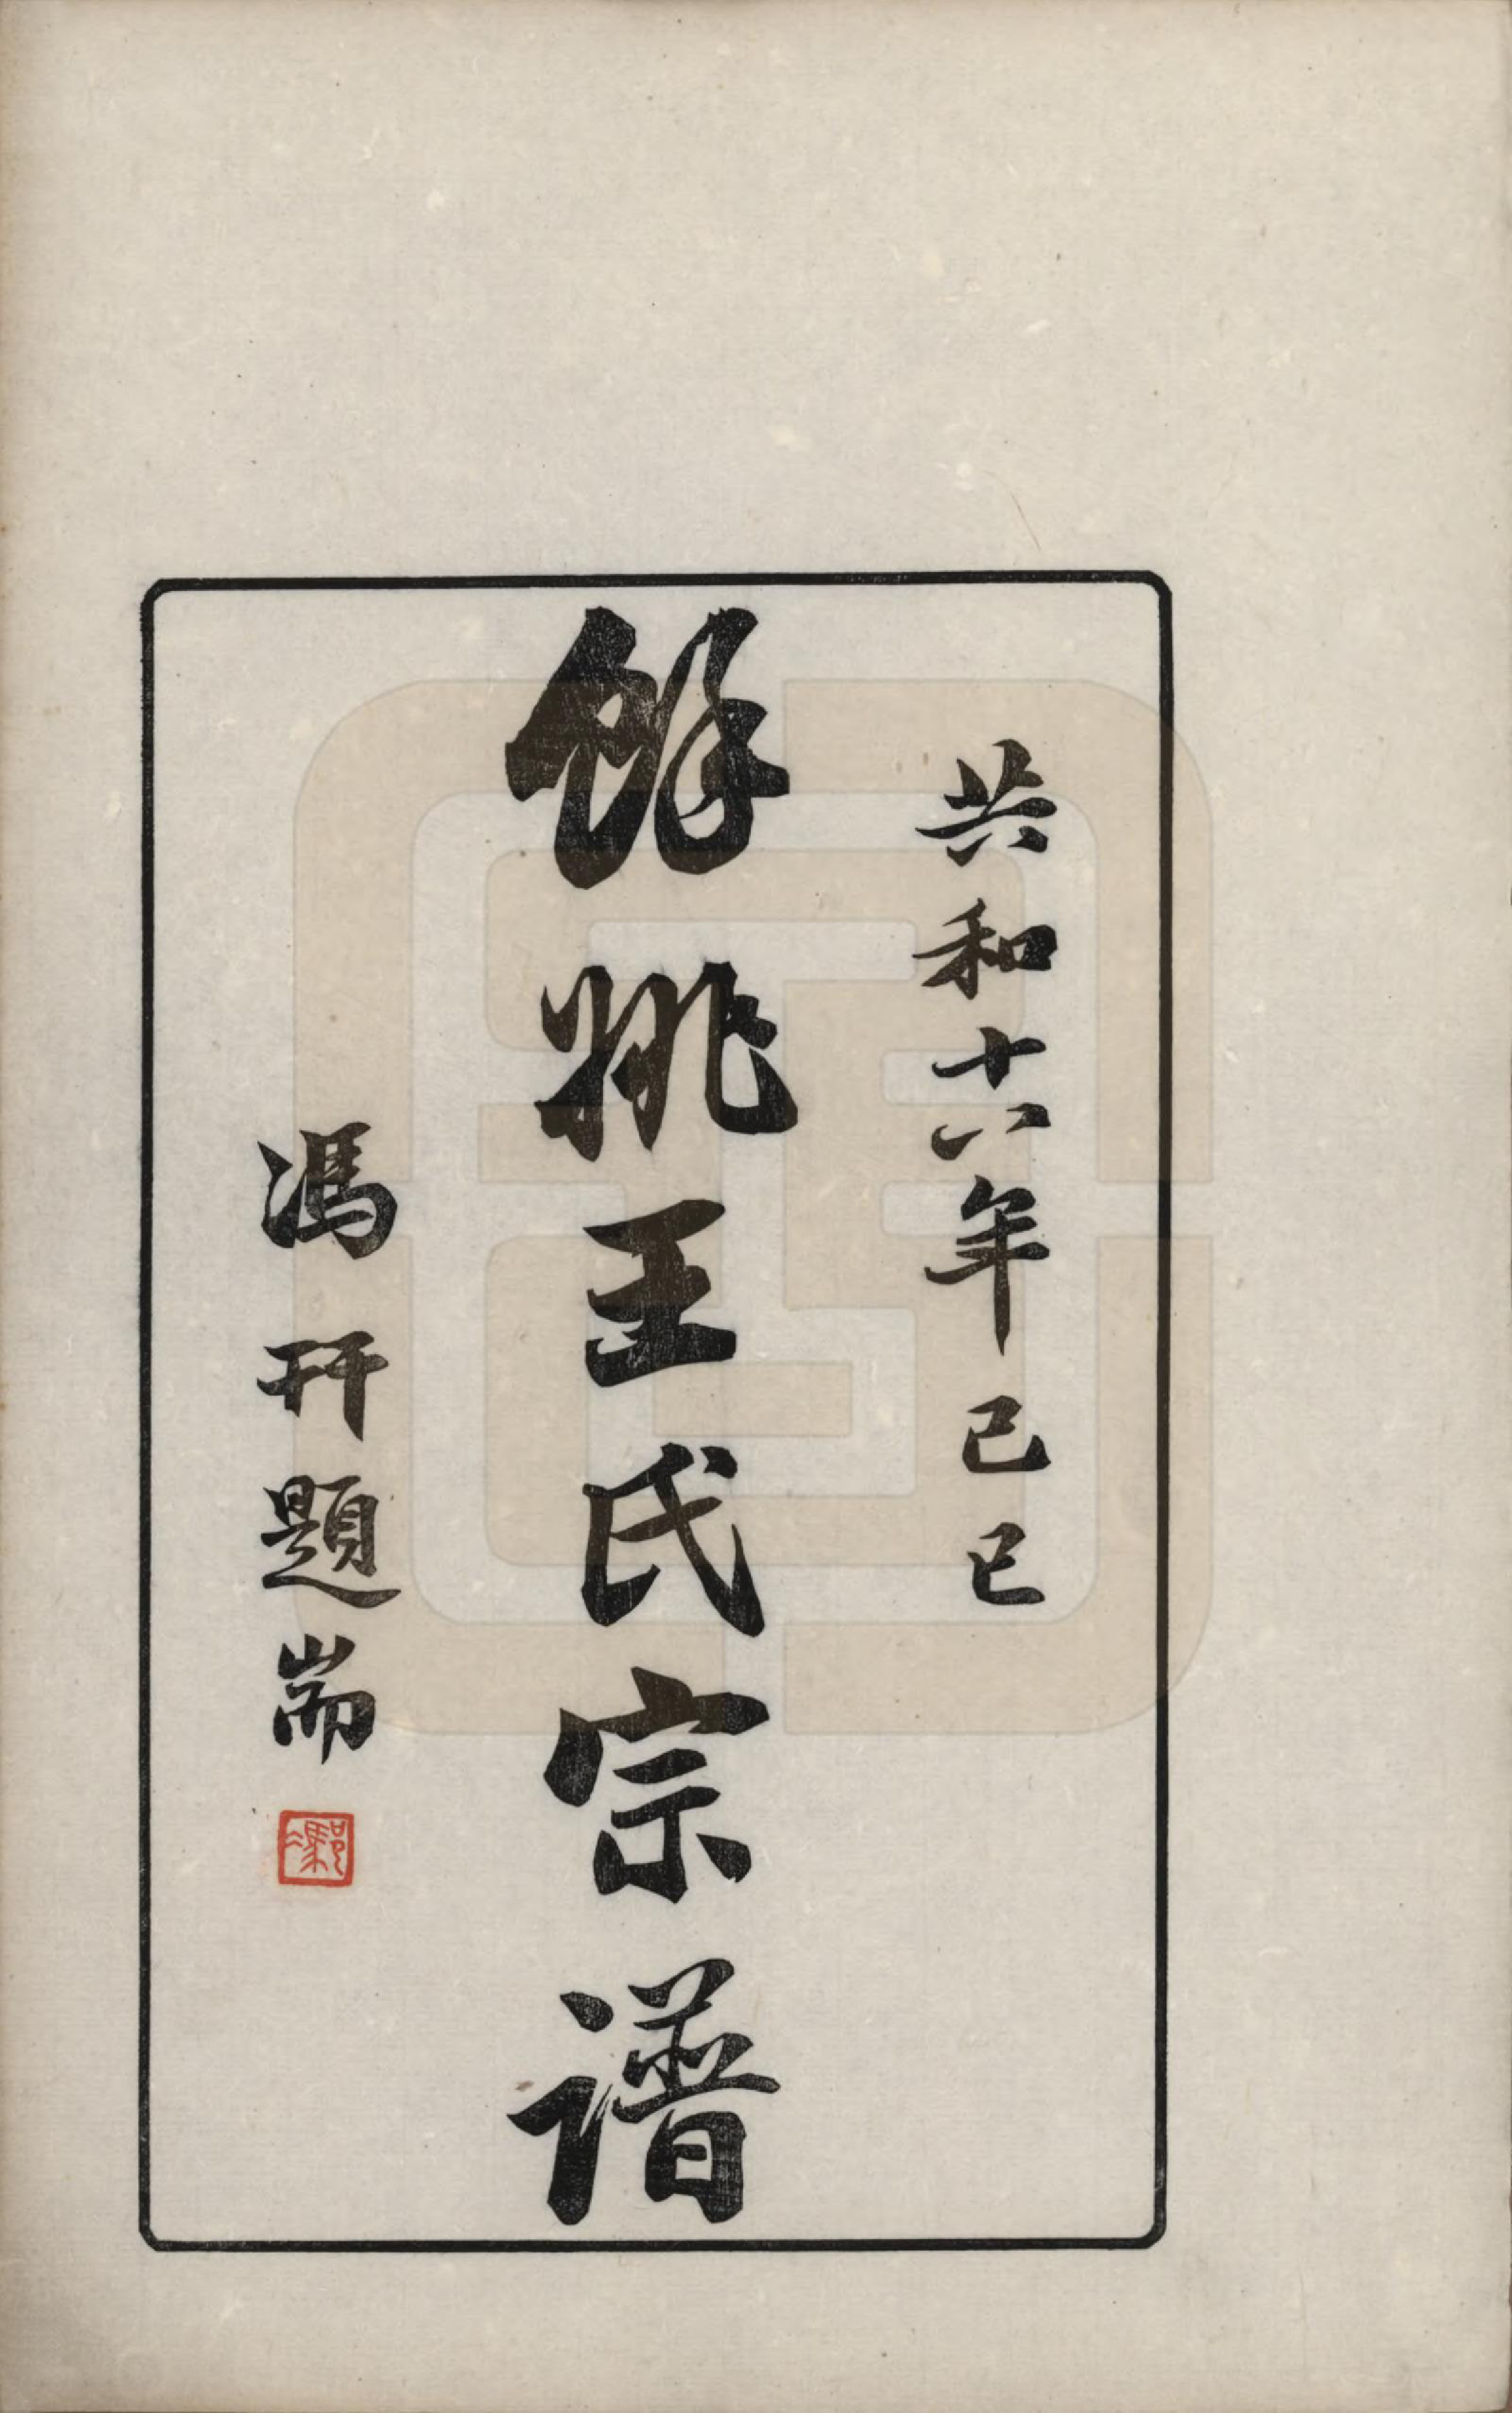 共和十八年己巳
餘姚王氏宗譜
馮幵題耑